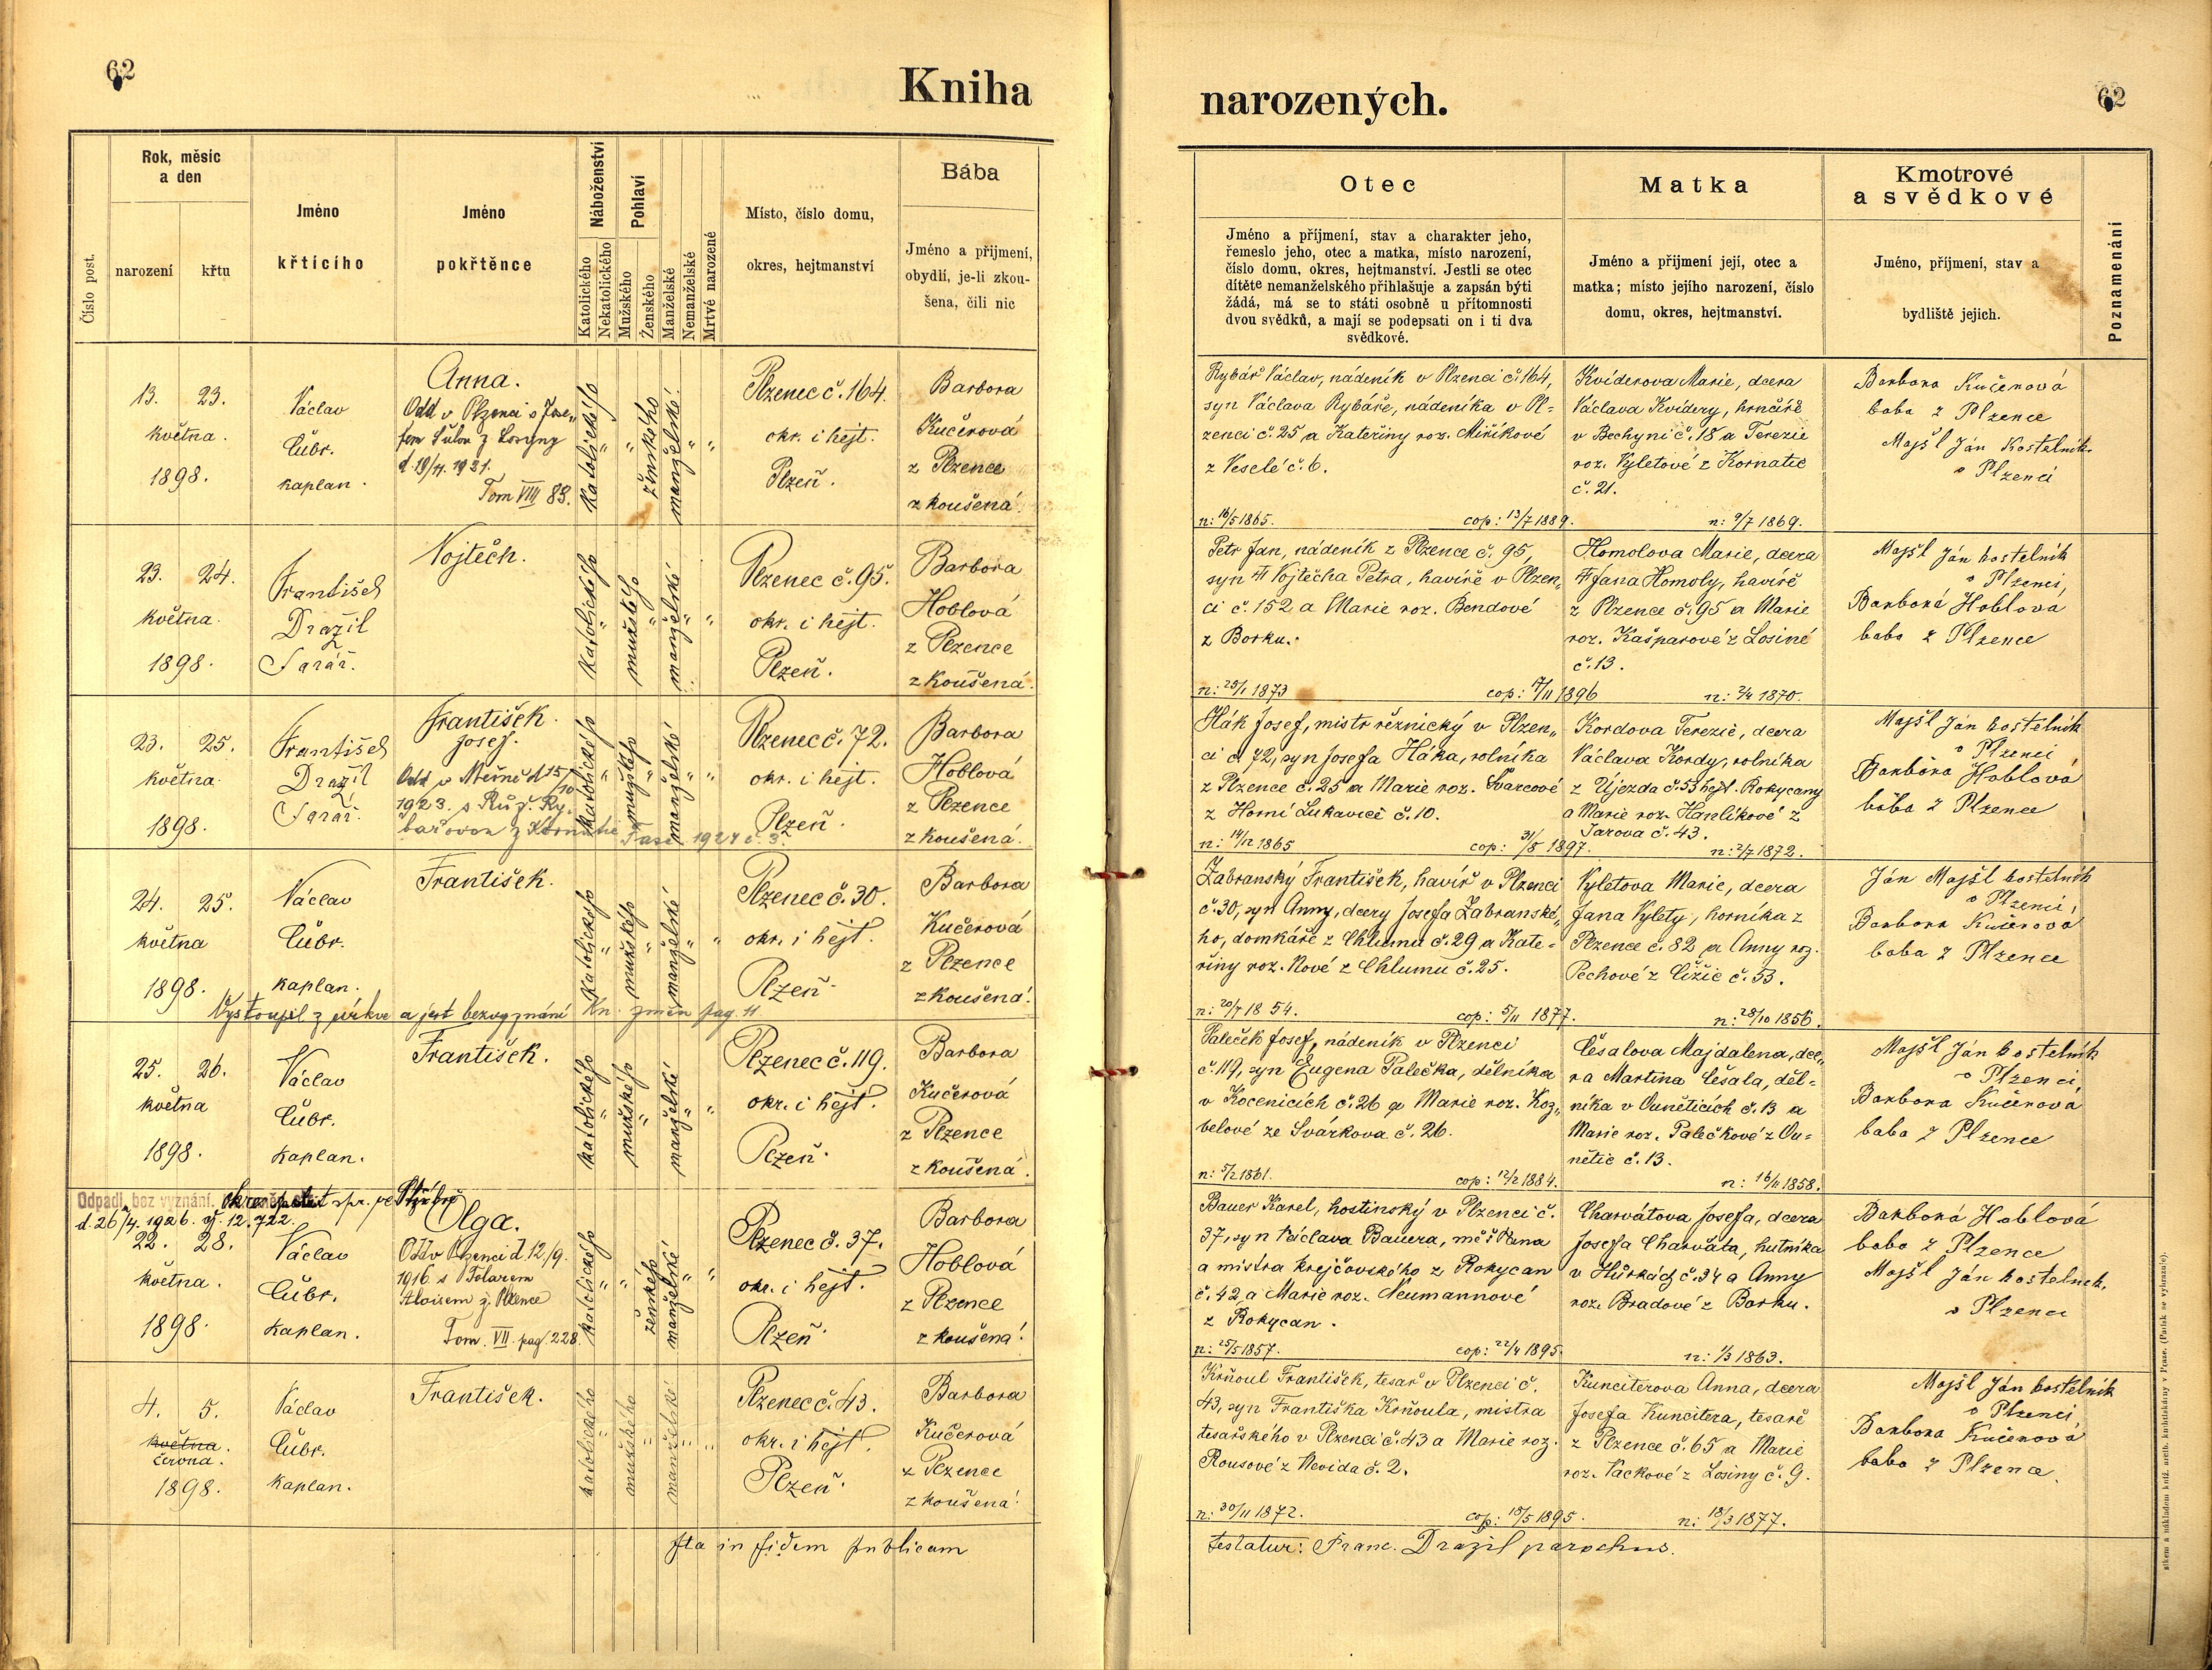 62
Kniha
narozených.
62
Číslo post.
Rok, měsíc
a den
narození
křtu
Jméno
křtícího
Jméno
pokřtěnce
Náboženství
Katolického
Nekatolického
Pohlaví
Mužského
Ženského
Manželské
Nemanželské
Mrtvé narozené
Místo, číslo domu,
okres, hejtmanství
Bába
Jméno a příjmení,
obydlí, je-li zkou-
šena, čili nic
Otec
Jméno a příjmení, stav a charakter jeho,
řemeslo jeho, otec a matka, místo narození,
číslo domu, okres, hejtmanství. Jestli se otec
dítěte nemanželského přihlašuje a zapsán býti
žádá, má se to státi osobně u přítomnosti
dvou svědků, a mají se podepsati on i ti dva
svědkové.
Matka
Jméno a příjmení její, otec a
matka; místo jejího narození, číslo
domu, okres, hejtmanství.
Kmotrové
a svědkové
Jméno, příjmení, stav a
bydliště jejich.
Poznamenání
13. 23.
května.
1898.
Václav
Čubr.
kaplan.
Anna.
Odd v Plzenci s Jose„
fem
d. 19/4. 1921.
Tom VIII 83.
katolického
"
"
ženského
manželské
"
"
Plzenec č. 164.
okr. i hejt.
Plzeň.
Barbora
Kučerová
z Plzence
zkoušená.
Rybář Václav, nádeník v Plzenci č. 164,
syn Václava Rybáře, nádeníka v Pl=
zenci č. 25 a Kateřiny roz. Miříkové
z Veselé č. 6.
n: 16/5 1865. cop: 13/7 1889.
Kviderova Marie, dcera
Václava Kvidery, hrnčíře
v Bechyni č. 18 a Terezie
roz. Vyletové z Kornatic
č. 21.
n: 9/7 1869.
Barbora Kučerová
baba z Plzence
Majšl Ján Kostelník
v Plzenci
23. 24.
května.
1898.
František
Dražil
farář.
Vojtěch.
katolického
"
mužského
"
manželské
"
"
Plzenec č. 95.
okr. i hejt.
Plzeň.
Barbora
Hoblová
z Plzence
zkoušená.
Petr Jan, nádeník z Plzence č. 95,
syn † Vojtěcha Petra, havíře v Plzen„
ci č. 152 a Marie roz. Bendové
z Borku.
n: 25/1 1873 cop: 17/11 1896
Homolova Marie, dcera
† Jana Homoly, havíře
z Plzence č. 95 a Marie
roz. Kašparové z Losiné
č. 13.
n: 2/4 1870.
Majšl Ján kostelník
v Plzenci,
Barbora Hoblová
baba z Plzence
23. 25.
května
1898.
František
Dražil
farář.
František
Josef.
Odd v Měcíně d 15/10
1923. s Růž. Ry„
bářovou z Kornatic Fasc. 1924 č. 3.
katolického
"
mužského
"
manželské
"
"
Plzenec č. 72.
okr. i hejt.
Plzeň.
Barbora
Hoblová
z Plzence
zkoušená.
Hák Josef, mistr řeznický v Plzen„
ci č. 72, syn Josefa Háka, rolníka
z Plzence č. 25 a Marie roz. Švarcové
z Horní Lukavice č. 10.
n: 14/12 1865 cop: 31/5 1897.
Kordova Terezie, dcera
Václava Kordy, rolníka
z Újezda č. 53 hejt. Rokycany
a Marie roz. Hanlíkové z
Tarova č. 43.
n: 2/7 1872.
Majšl Ján kostelník
v Plzenci
Barbora Hoblová
bába z Plzence
24. 25.
května
1898.
Václav
Čubr.
kaplan.
František.
Vystoupil z církve a jest bezvyznání Kn. změn pag. 11
katolického
"
mužského
"
manželské
"
"
Plzenec č. 30.
okr. i hejt.
Plzeň.
Barbora
Kučerová
z Plzence
zkoušená.
Zabranský František, havíř v Plzenci
č. 30, syn Anny, dcery Josefa Zabranské„
ho, domkáře z Chlumu č. 29 a Kate=
řiny roz. Nové z Chlumu č. 25.
n: 20/7 1854. cop: 5/11 1877.
Vyletova Marie, dcera
Jana Vylety, horníka z
Plzence č. 82 a Anny roz.
Pechové z Čižic č. 53.
n: 28/10 1856.
Ján Majšl kostelník
v Plzenci,
Barbora Kučerová
baba z Plzence
25. 26.
května
1898.
Václav
Čubr.
kaplan.
František.
katolického
"
mužského
"
manželské
"
"
Plzenec č. 119.
okr. i hejt.
Plzeň.
Barbora
Kučerová
z Plzence
zkoušená.
Paleček Josef, nádeník v Plzenci
č. 119, syn Eugena Palečka, dělníka
v Kocenicích č. 26 a Marie roz. Koz„
belové ze Svárkova č. 26.
n: 5/2 1861. cop: 12/2 1884.
Česalova Majdalena, dce„
ra Martina Česala, děl=
níka v Ouněticích č. 13 a
Marie roz. Palečkové z Ou=
nětic č. 13.
n: 16/11 1858.
Majšl Ján kostelník
v Plzenci,
Barbora Kučerová
baba z Plzence
Odpadl, bez vyznání.
d. 26/4. 1926. čj. 12.722.
22. 28.
května.
1898.
Václav
Čubr.
kaplan.
Olga.
Odd v Plzenci d. 12/9.
1916 s Tolarem
Aloisem z Plzence
Tom. VII. pag. 228
katolického
"
"
ženského
manželské
"
"
Plzenec č. 37.
okr. i hejt.
Plzeň.
Barbora
Hoblová
z Plzence
zkoušená.
Bauer Karel, hostinský v Plzenci č.
37, syn Václava Bauera, měšťana
a mistra krejčovského z Rokycan
č. 42 a Marie roz. Neumannové
z Rokycan.
n: 25/5 1857. cop: 22/4 1895.
Charvátova Josefa, dcera
Josefa Charváta, hutníka
v Hůrkách č. 34 a Anny
roz. Bradové z Borku.
n: 1/3 1863.
Barbora Hoblová
baba z Plzence
Majšl Ján kostelník,
v Plzenci
4. 5.
května.
června.
1898.
Václav
Čubr.
kaplan.
František.
katolického
"
mužského
"
manželské
"
"
Plzenec č. 43.
okr. i hejt.
Plzeň.
Barbora
Kučerová
z Plzence
zkoušená.
Krňoul František, tesař v Plzenci č.
43, syn Františka Krňoula, mistra
tesařského v Plzenci č. 43 a Marie roz.
Rousové z Nevida č. 2.
n: 30/11 1872. cop: 18/5 1895.
Kunciterova Anna, dcera
Josefa Kuncitera, tesaře
z Plzence č. 65 a Marie
roz. Vackové z Losiny č. 9.
n: 18/3 1877.
Majšl Ján kostelník
v Plzenci,
Barbora Kučerová
baba z Plzence.
Ita in fidem publicam
testatur: Franc. Dražil parochus.